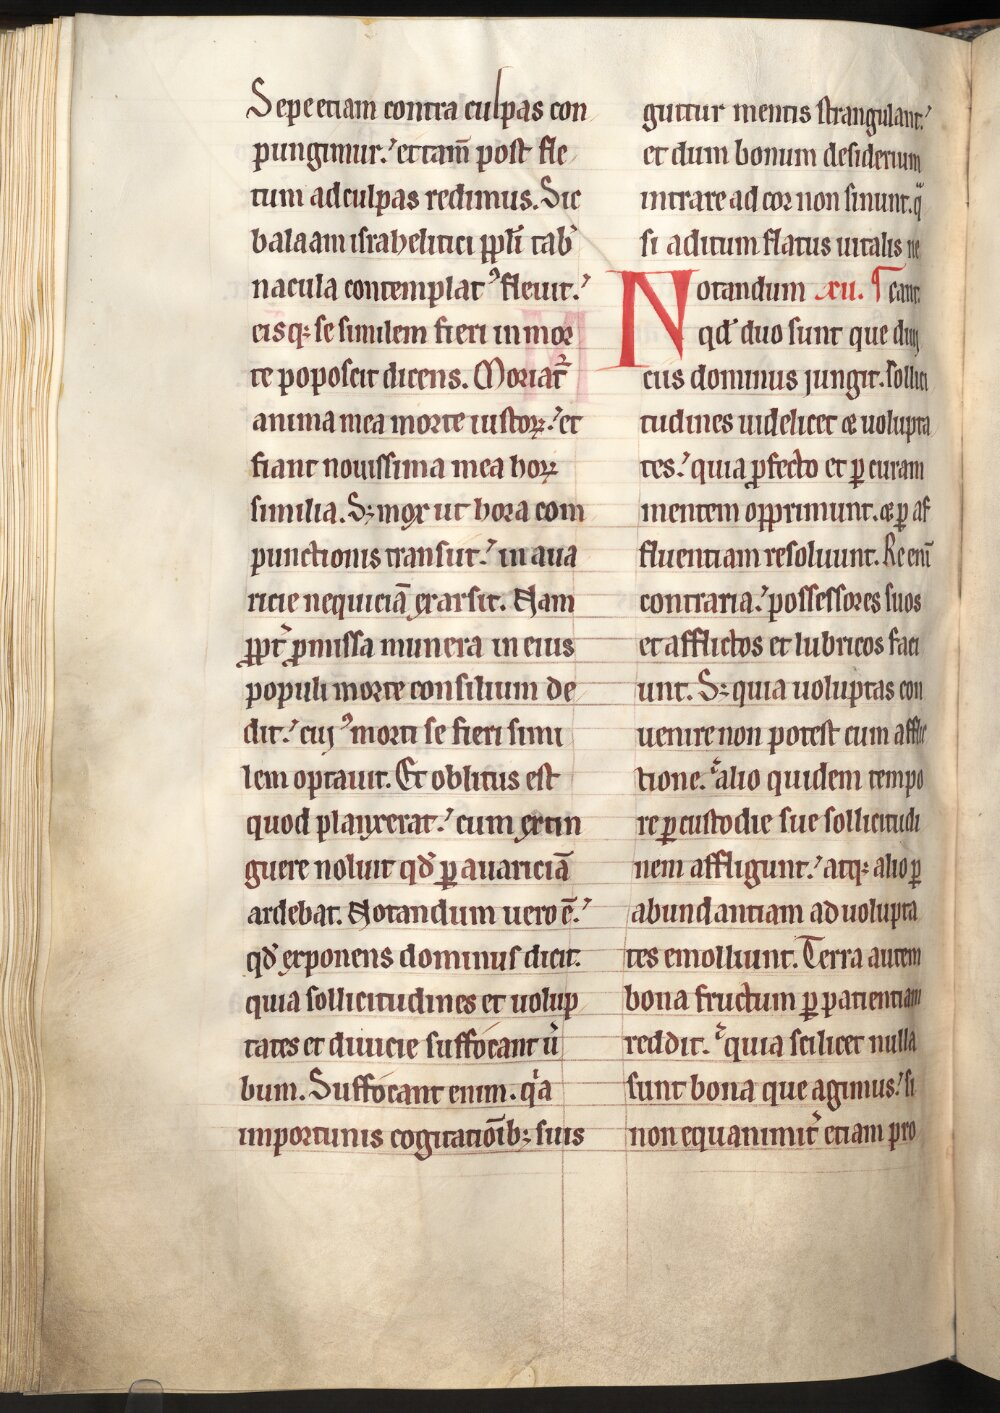 Sepe etiam contra culpas con
pungimur.' et tam̄ post fle
tum ad culpas redimus. Sic
balaam israhelitici ppl̄i tab̾
nacula contemplatꝰ fleuit.'
eisq; se similem fieri in mor
te poposcit dicens. Moriat᷑
anima mea morte iustoꝝ.' et
fiant nouissima mea hoꝝ
similia. Sꝫ mox ut hora com
punctionis transiit.' in aua
ricie nequiciā exarsit. Nam
ꝓpt̾ ꝓmissa munera in eius
populi morte consilium de
dit.' cuiꝰ morti se fieri simi
lem optauit. Et oblitus est
quod planxerat.' cum extin
guere noluit qđ ꝑ auariciā
ardebat. Notandum uero ē.'
qđ exponens dominus dicit.
quia sollicitudines et uolup
tates et diuicie suffocant ū
bum. Suffocant enim. qͥa
importunis cogitatiōibꝫ suis
guttur mentis strangulant.'
et dum bonum desiderium
intrare ad cor non sinunt. q̈
si aditum flatus uitalis ne
Notandum xii. ¶ cant.
qđ duo sunt que diui
ciis dominus jungit. sollici
tudines uidelicet & uolupta
tes.' quia ꝓfecto et ꝑ curam
mentem opprimunt. & ꝑ af
fluentiam resoluunt. Re enī
contraria.' possessores suos
et afflictos et lubricos faci
unt. Sꝫ quia uoluptas con
uenire non potest cum afflic
tione. alio quidem tempo
re ꝑ custodie sue sollicitudi
nem affligunt.' atq; alio ꝑ
abundantiam ad uolupta
tes emolliunt. Terra autem
bona fructum ꝑ patientiam
reddit. quia scilicet nulla
sunt bona que agimus.' si
non equanimit̾ etiam pro